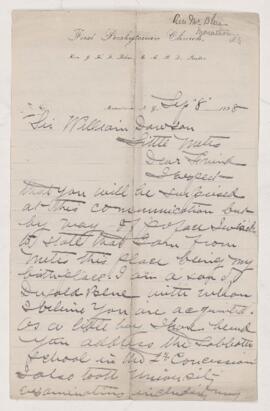 Rev Mc Blue
First Presbyterian Church,
Sep 8 1898
Sir William Dawson
Little Metis
Dear Friend
I expect
that you will be surprised
at this communication but
by way of preface I wish
to state that I am from
Metis this place being my
birthplace. I am a son of
Dugald Blue with whom
I believe you are acquainted.
As a little boy I have heard
you address the Sabbath
School in the 2nd Concession
I also took University
examinations including my